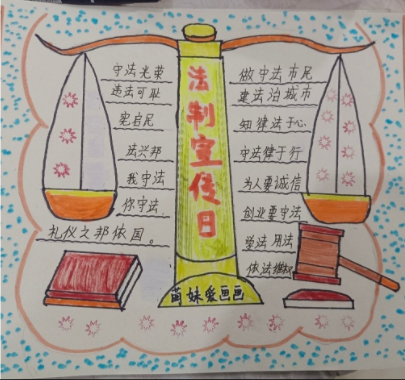 法制宣传日
守法光荣
违法可耻
宪启民
法兴邦
我守法
你守法
礼仪之邦依国。
做守法市民
建法治城市
知律法于心
守法律于行
为人要诚信
创业要守法
学法用法
依法维权
萌妹爱画画